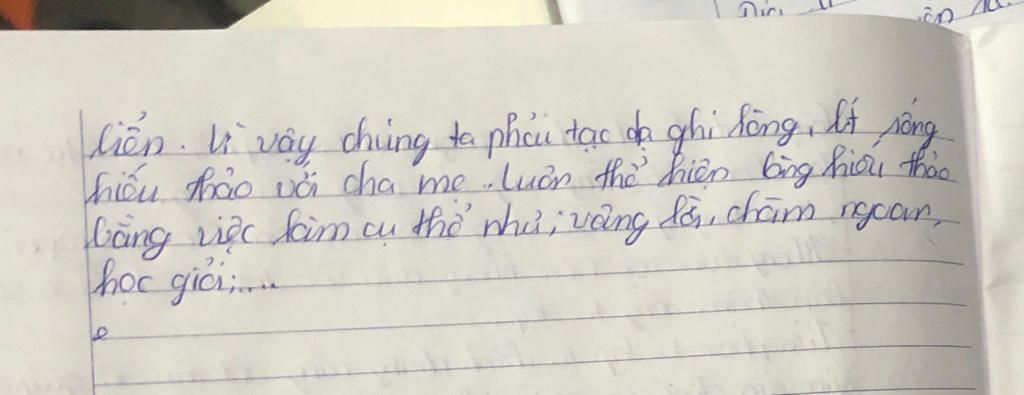 liền. Vì vậy chúng ta phải tạc dạ ghi lòng, biết sống
hiếu thảo với cha mẹ. Luôn thể hiện lòng hiếu thảo
bằng việc làm cụ thể như; vâng lời, chăm ngoan,
học giỏi;....